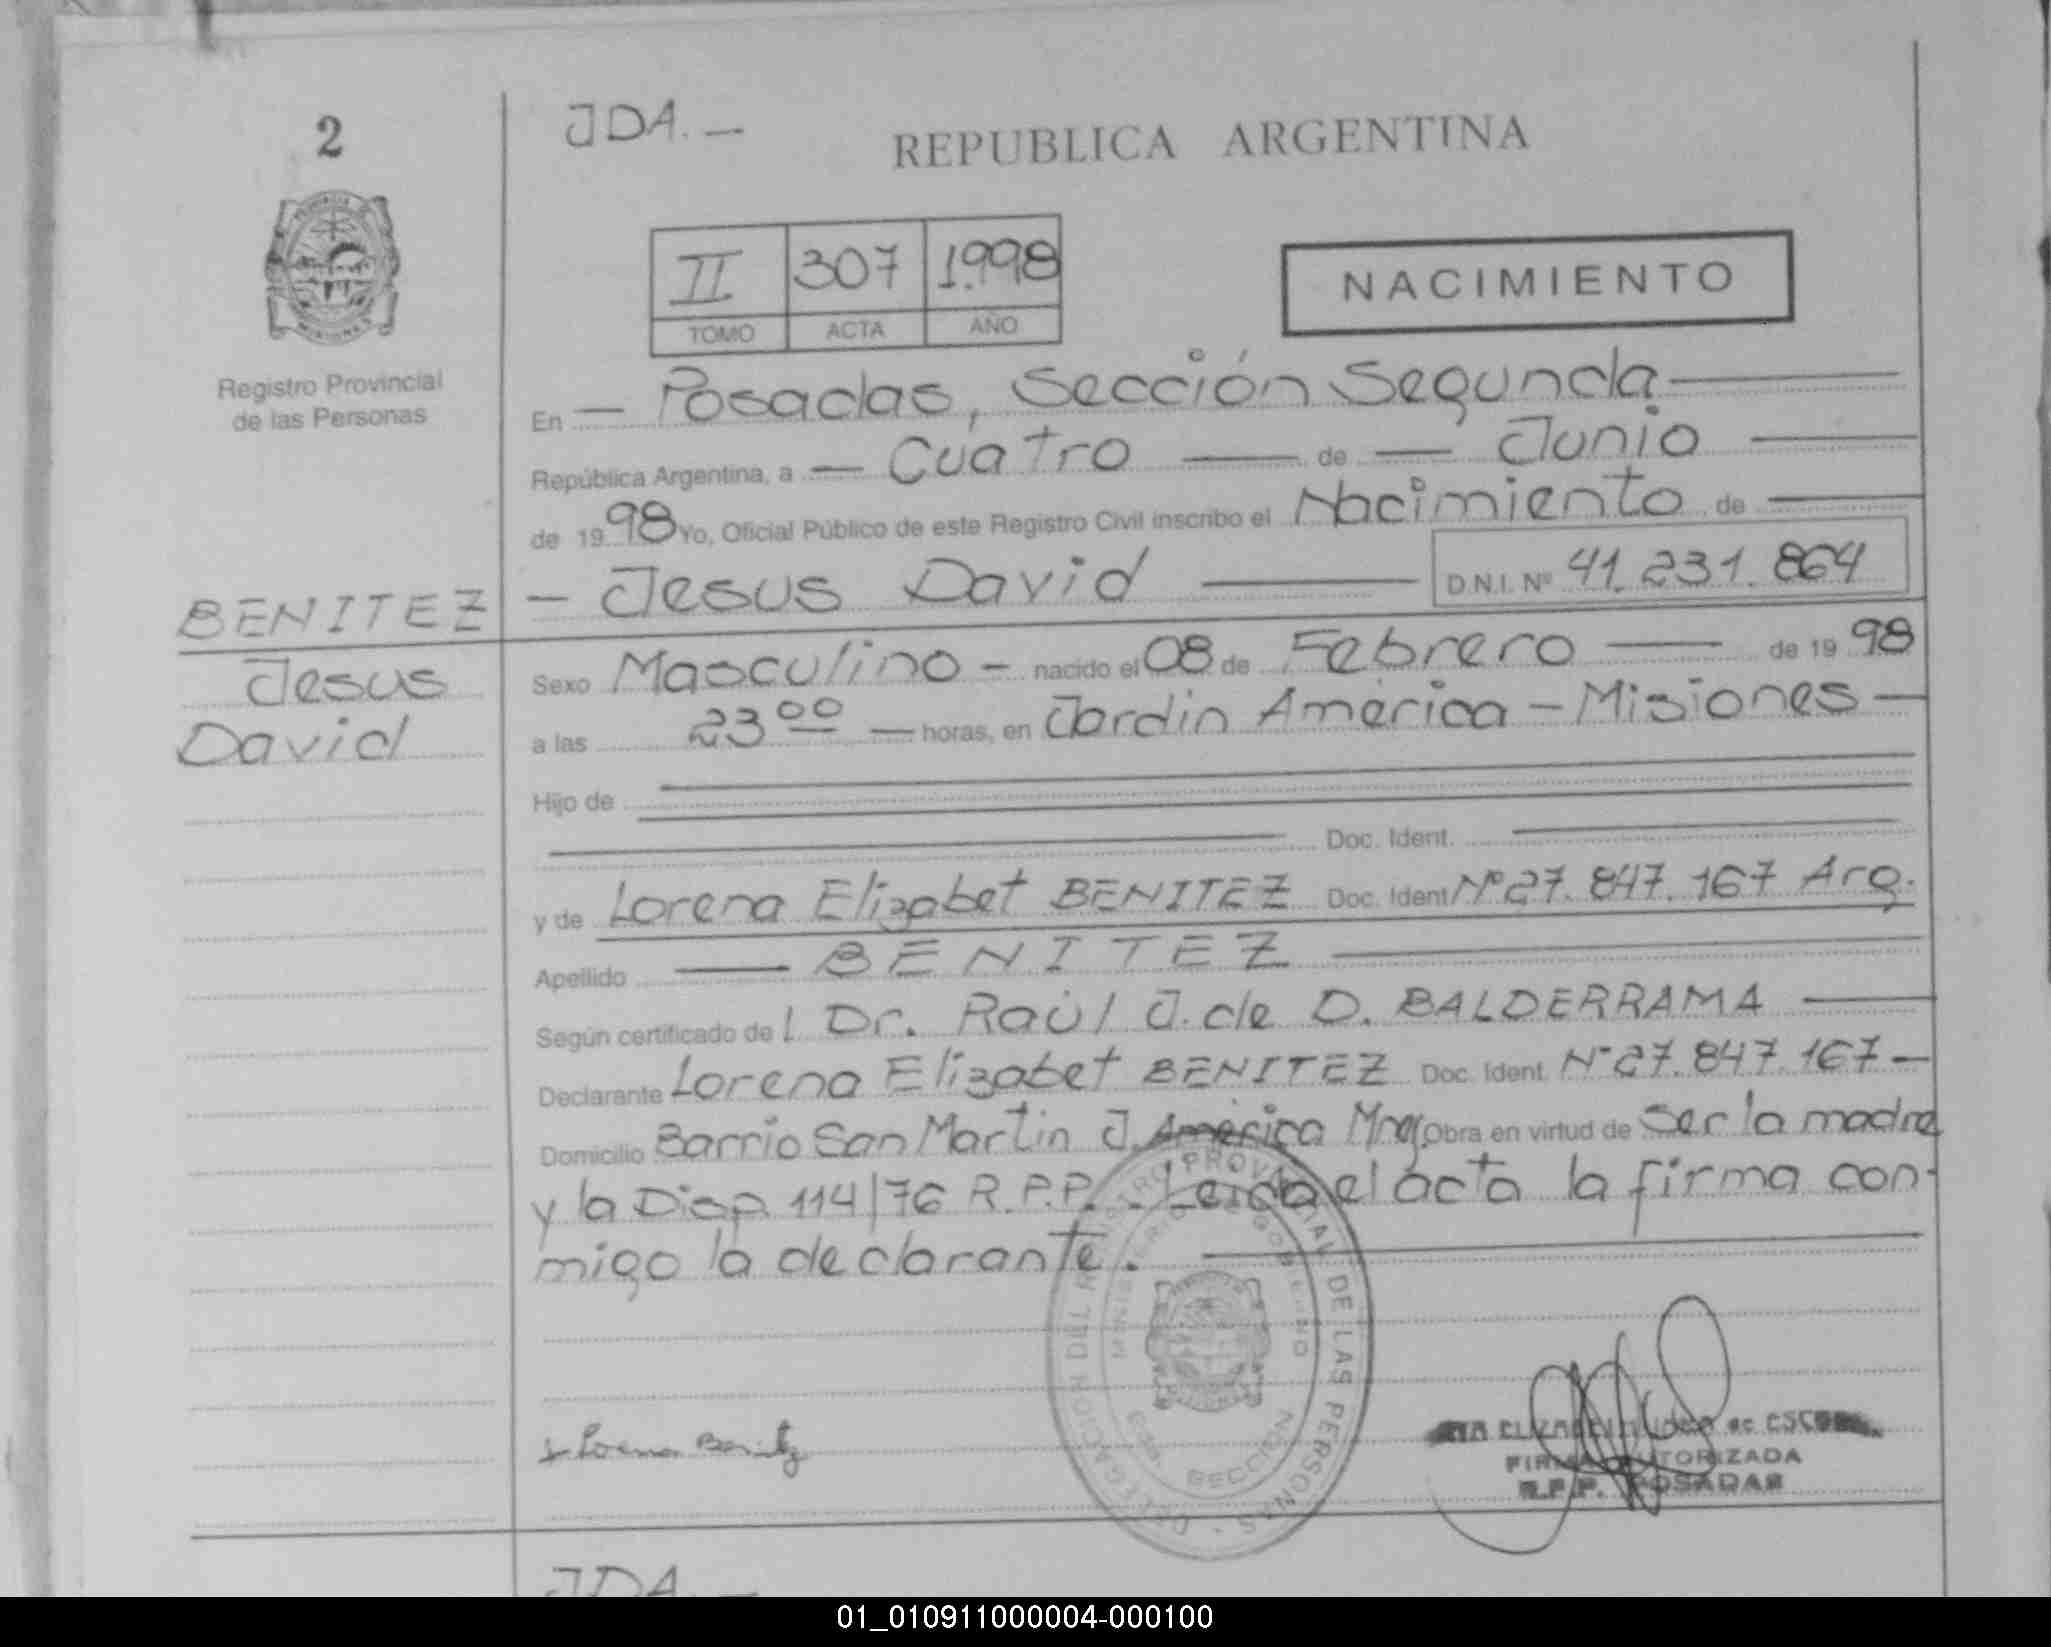 2
JDA. —
REPUBLICA ARGENTINA
II 307 1.998
TOMO ACTA AÑO
NACIMIENTO
Registro Provincial
de las Personas
En — Posadas, Sección Segunda —
República Argentina, a — Cuatro — de — Junio —
de 19 98 Yo, Oficial Público de este Registro Civil inscribo el Nacimiento de —
BENITEZ
— Jesus David — D.N.I. Nº 41.231.864
Jesus
David
Sexo Masculino — nacido el 08 de Febrero — de 19 98
a las 23 00 — horas, en Jardin América — Misiones —
Hijo de
Doc. Ident.
y de Lorena Elizabet BENITEZ Doc. Ident Nº 27.847.167 Arg.
Apellido — BENITEZ —
Según certificado de l Dr. Raúl J. de D. BALDERRAMA —
Declarante Lorena Elizabet BENITEZ Doc. Ident. Nº 27.847.167 —
Domicilio Barrio San Martin J. América Mnes. Obra en virtud de Ser la madre
y la Disp. 114/76 R.P.P. . Leida el acta la firma con-
migo la declarante. —
DELEGACION DEL REGISTRO PROVINCIAL DE LAS PERSONAS -
MINISTERIO DE GOBIERNO
SECCION
Lorena Benitez
FIRMA AUTORIZADA
R.P.P. POSADAS
JDA. —
01_010911000004-000100